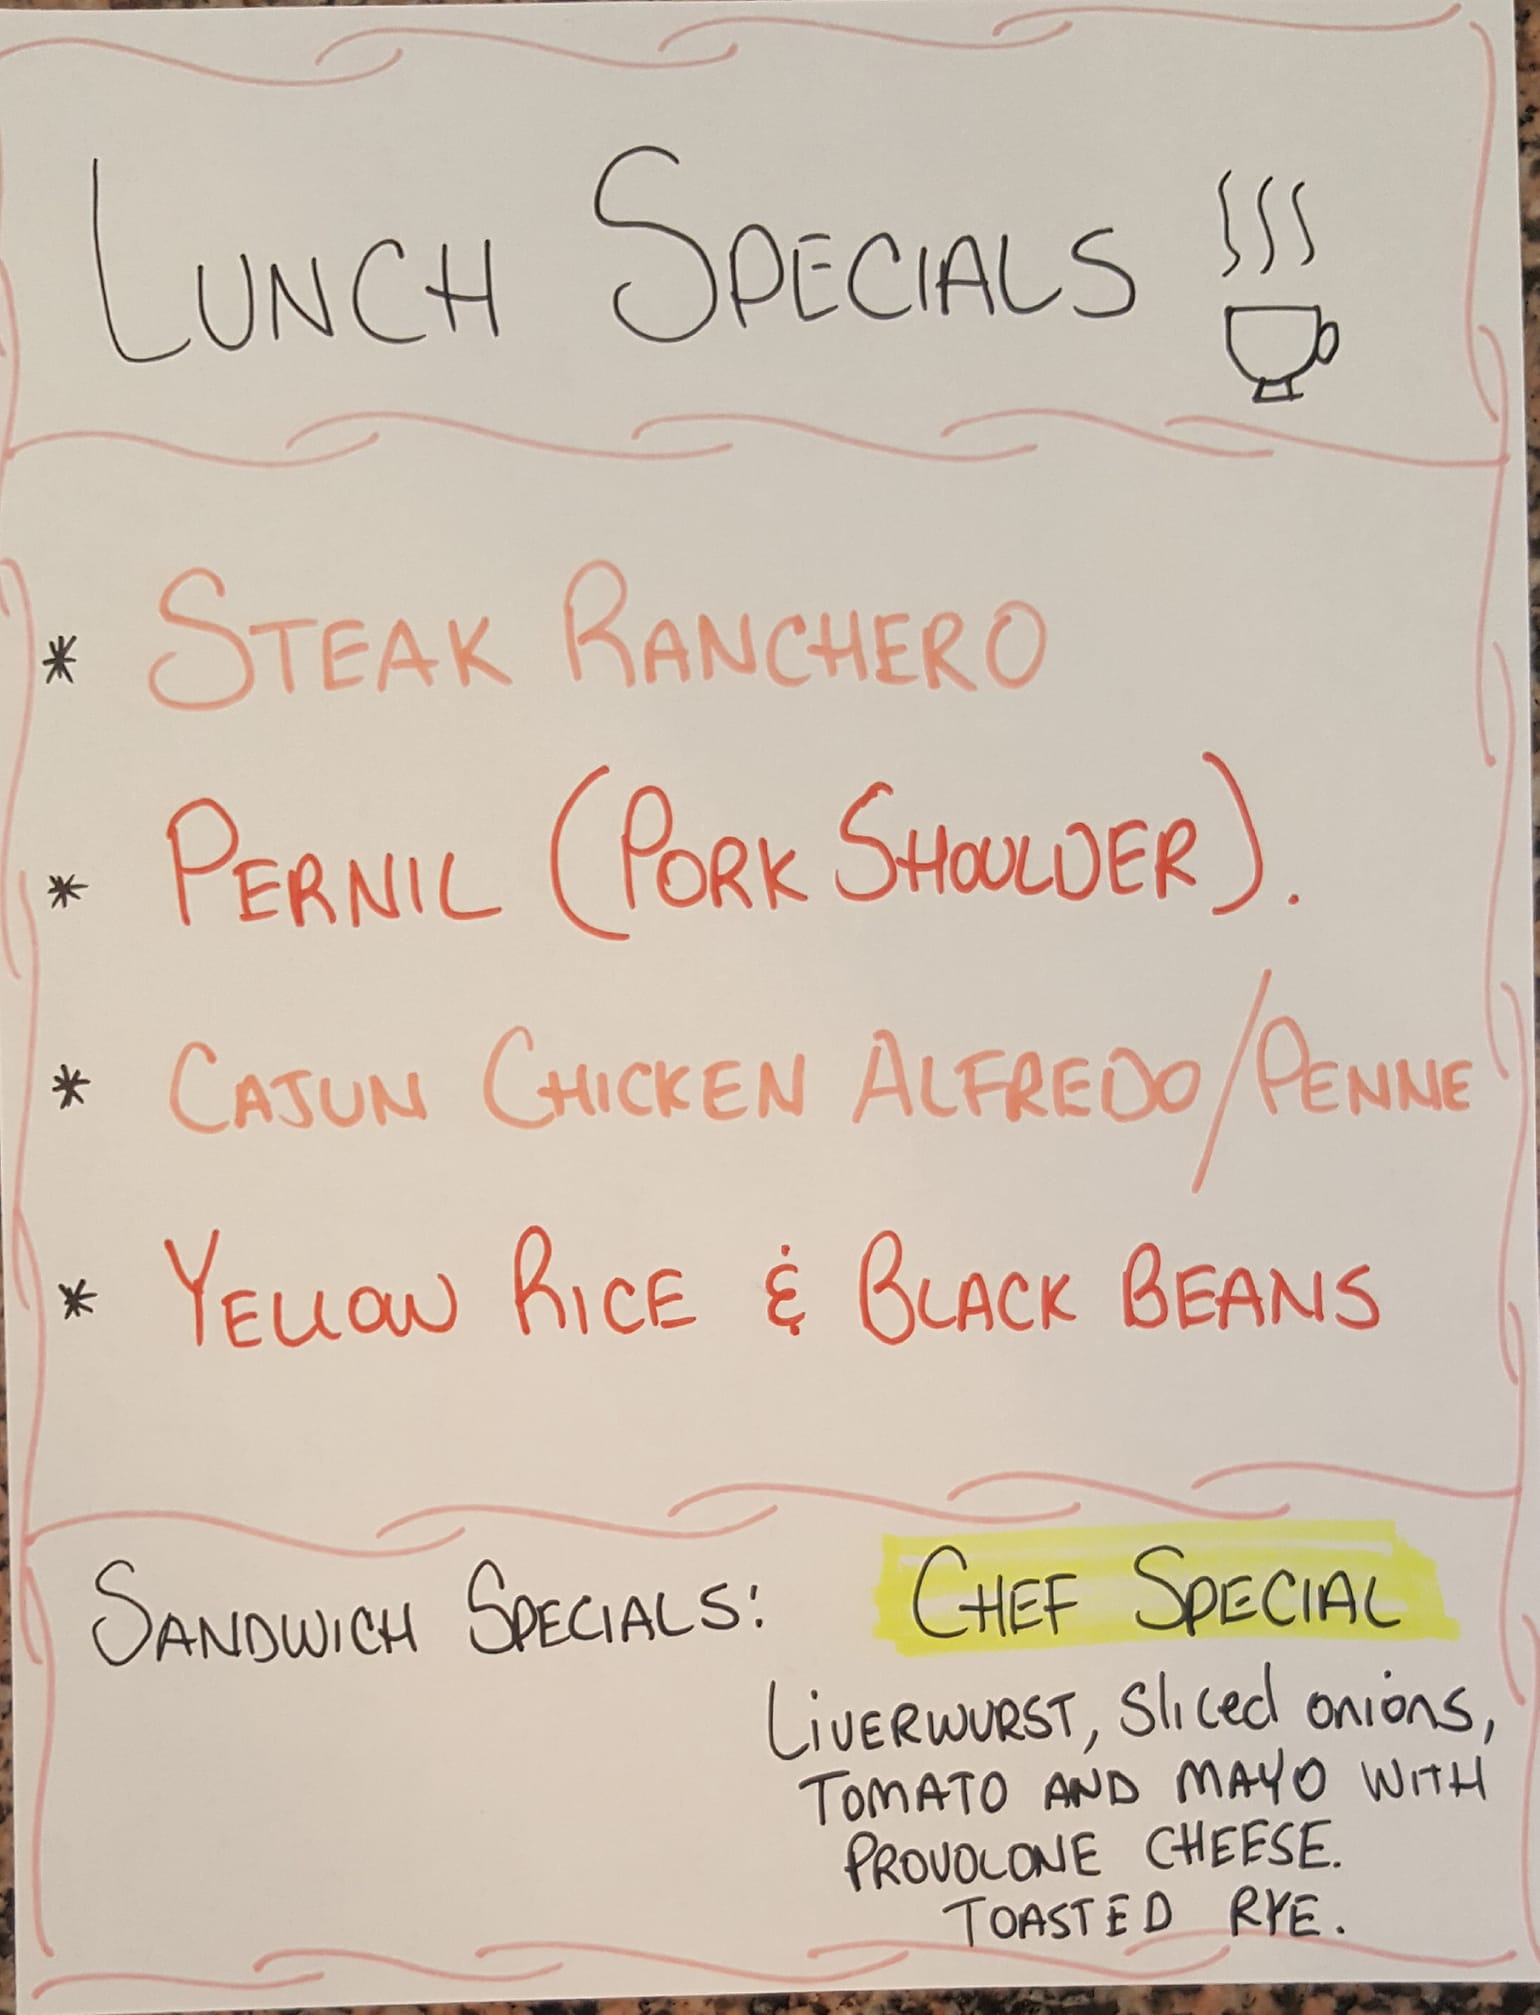 LUNCH SPECIALS
* STEAK RANCHERO
* PERNIL (PORK SHOULDER).
* CAJUN CHICKEN ALFREDO/PENNE
* YELLOW RICE & BLACK BEANS
SANDWICH SPECIALS: CHEF SPECIAL
LiVERWURST, Sliced onions,
TOMATO AND MAYO WITH
PROVOLONE CHEESE.
TOASTED RYE.